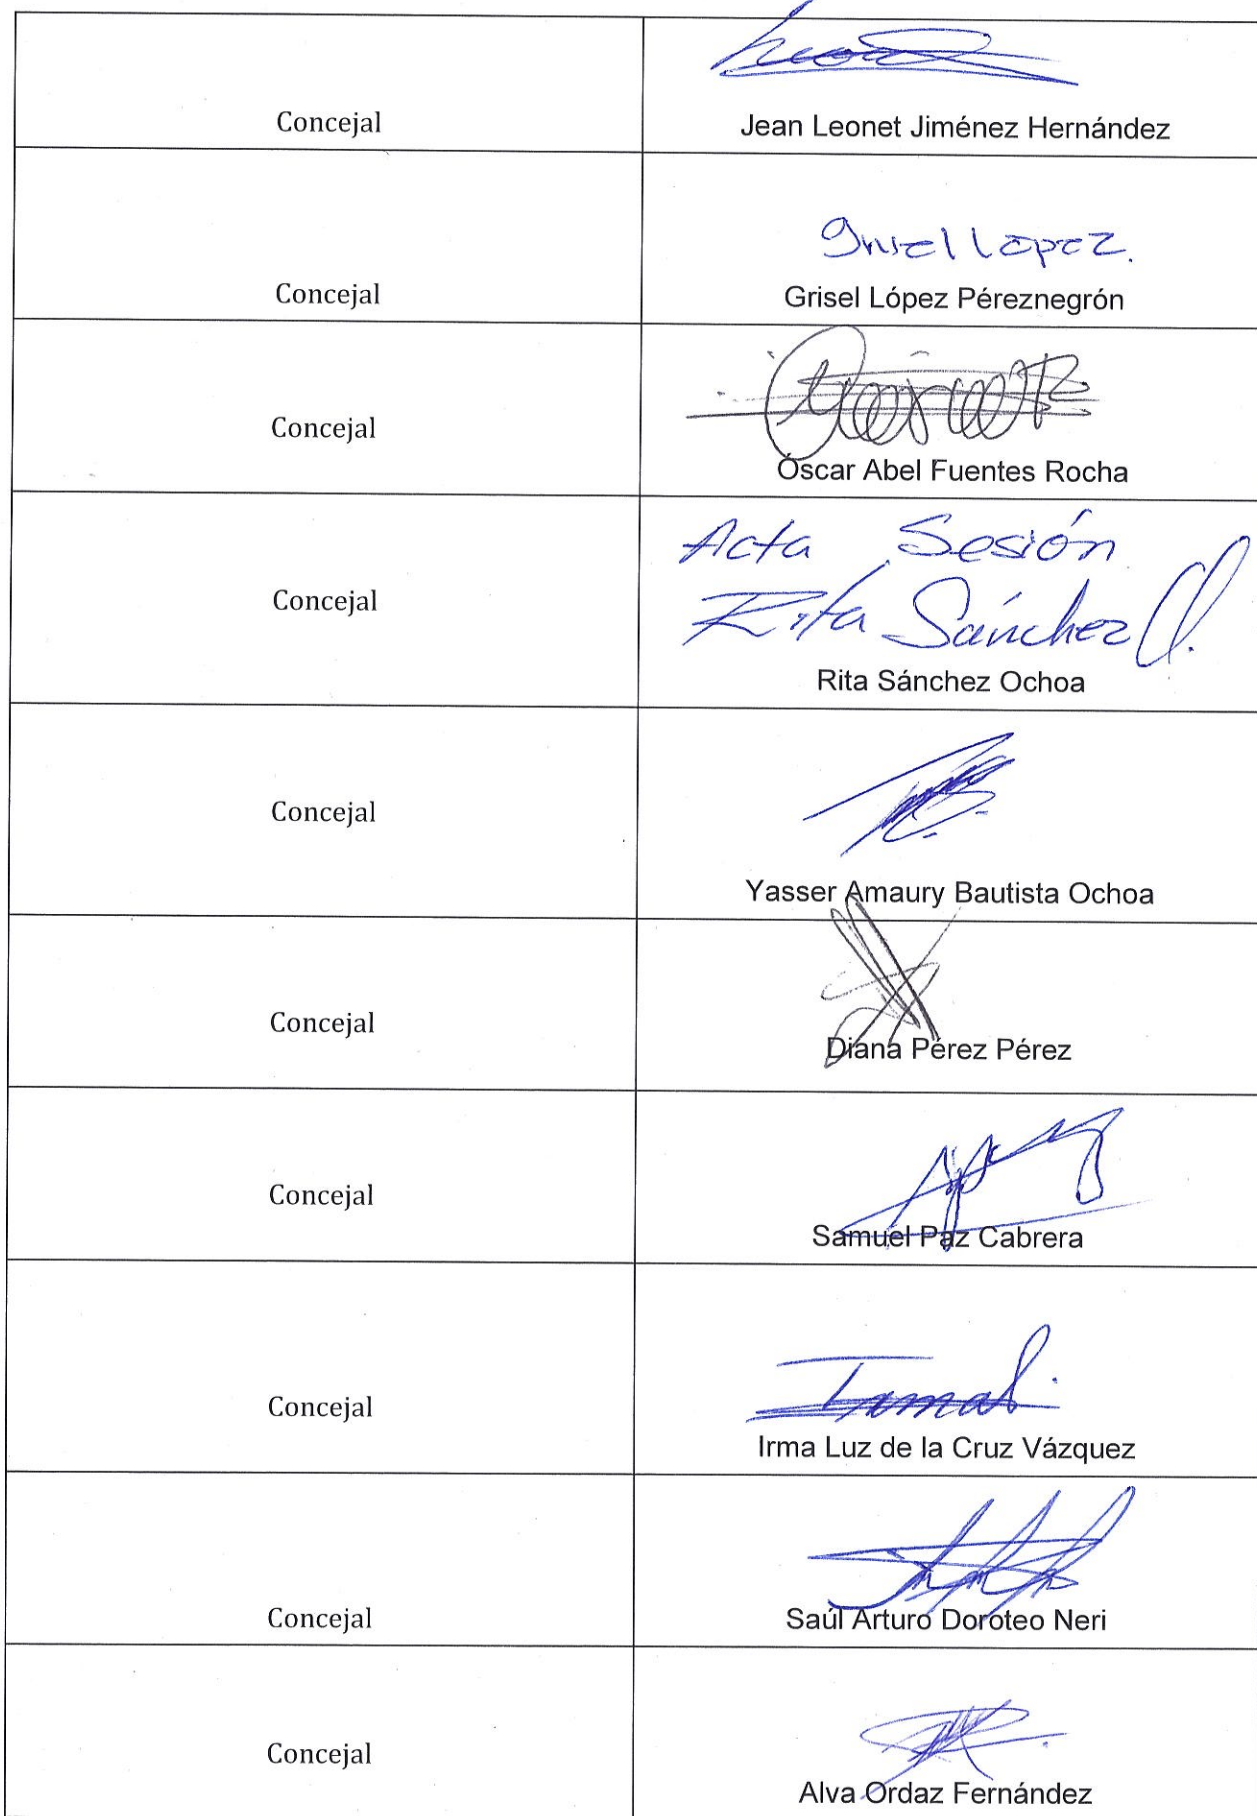 Concejal
Jean Leonet Jiménez Hernández
Grisel López.
Concejal
Grisel López Péreznegrón
Concejal
Óscar Abel Fuentes Rocha
Acta Sesión
Concejal
Rita Sánchez O.
Rita Sánchez Ochoa
Concejal
Yasser Amaury Bautista Ochoa
Concejal
Diana Pérez Pérez
Concejal
Samuel Paz Cabrera
Concejal
Irma Luz de la Cruz Vázquez
Concejal
Saúl Arturo Doroteo Neri
Concejal
Alva Ordaz Fernández